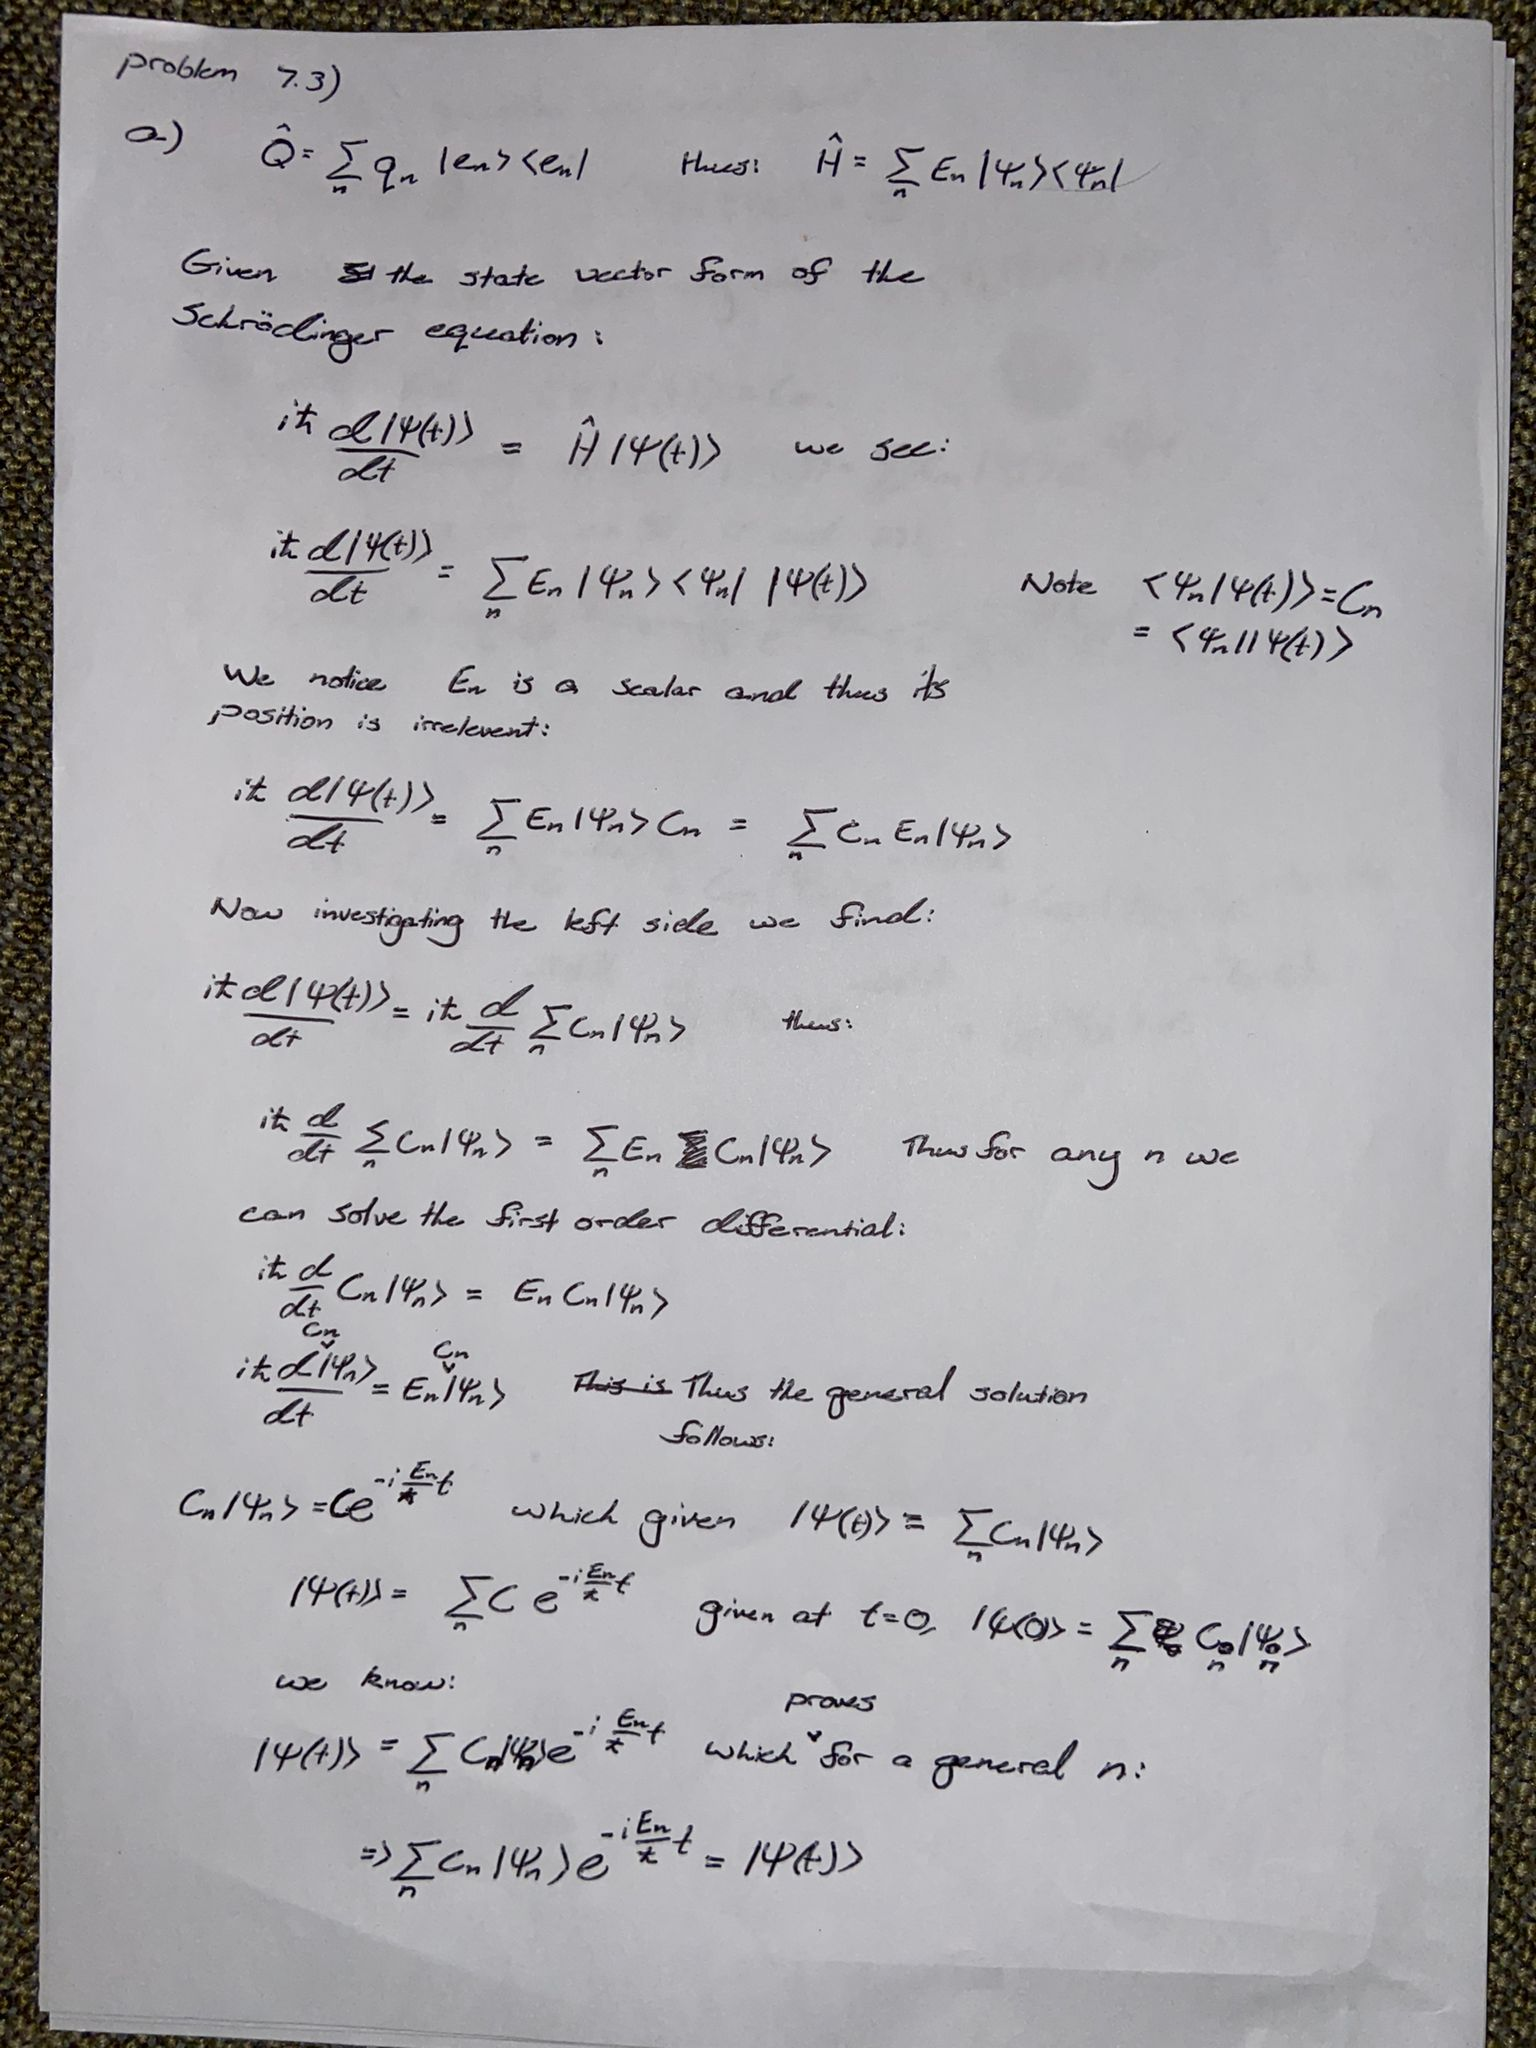 problem 7.3)
a) Q̂ = Σ_n q_n |e_n><e_n| thus: Ĥ = Σ_n E_n |Ψ_n><Ψ_n|
Given the state vector form of the
Schrödinger equation:
iħ d|Ψ(t)>/dt = Ĥ |Ψ(t)> we see:
iħ d|Ψ(t)>/dt = Σ_n E_n |Ψ_n><Ψ_n| |Ψ(t)> Note <Ψ_n|Ψ(t)> = C_n
= <Ψ_n||Ψ(t)>
We notice E_n is a scalar and thus its
position is irrelevent:
iħ d|Ψ(t)>/dt = Σ_n E_n |Ψ_n> C_n = Σ_n C_n E_n |Ψ_n>
Now investigating the left side we find:
iħ d|Ψ(t)>/dt = iħ d/dt Σ_n C_n |Ψ_n> thus:
iħ d/dt Σ_n C_n |Ψ_n> = Σ_n E_n C_n |Ψ_n> Thus for any n we
can solve the first order differential:
iħ d/dt C_n |Ψ_n> = E_n C_n |Ψ_n>
iħ d C_n |Ψ_n>/dt = E_n C_n |Ψ_n> This is Thus the general solution
follows:
C_n |Ψ_n> = Ce^{-i E_n/ħ t} which given |Ψ(t)> = Σ_n C_n |Ψ_n>
|Ψ(t)> = Σ_n C e^{-i E_n/ħ t} given at t=0, |Ψ(0)> = Σ_n C_n |Ψ_n>
we know:
|Ψ(t)> = Σ_n C_n |Ψ_n> e^{-i E_n/ħ t} which proves for a general n:
=> Σ_n C_n |Ψ_n> e^{-i E_n/ħ t} = |Ψ(t)>